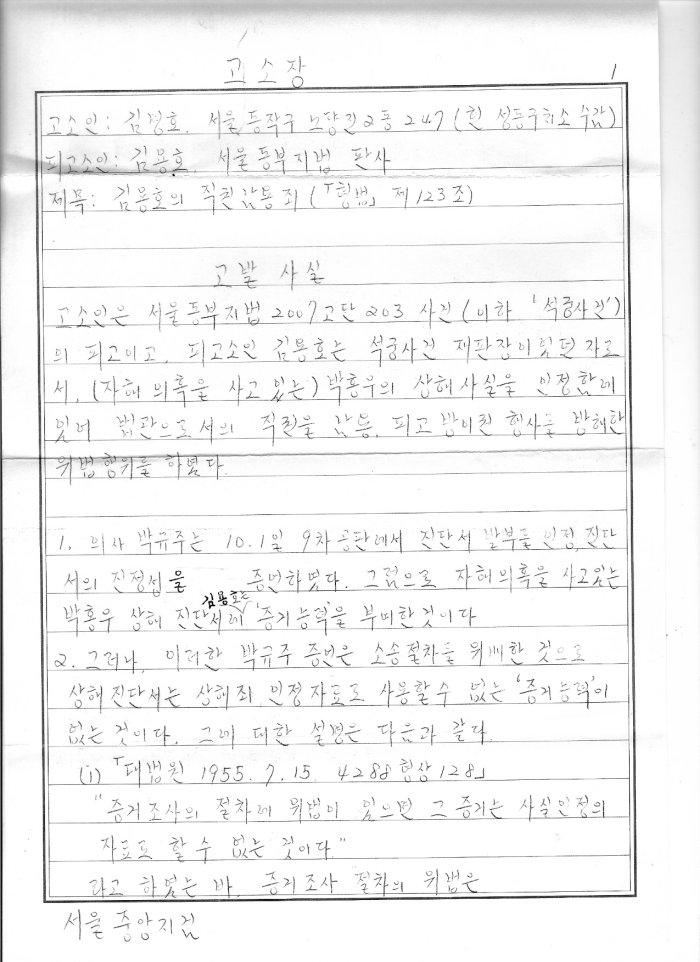 고소장
1
고소인: 김명호. 서울 동작구 노량진2동 247 (현 성동구치소 수감)
피고소인: 김용호. 서울동부지법 판사
제목: 김용호의 직권남용죄 (「형법」 제123조)
고발 사실
고소인은 서울동부지법 2007고단203 사건 (이하 '석궁사건')
의 피고이고, 피고소인 김용호는 석궁사건 재판장이었던 자로
서, (자해의혹을 사고 있는) 박홍우의 상해사실을 인정함에
있어 법관으로서의 직권을 남용, 피고 방어권 행사를 방해한
위법행위를 하였다.
1. 의사 박규주는 10.1일 9차공판에서 진단서 발부를 인정, 진단
서의 진정성을 증언하였다. 그럼으로 자해의혹을 사고있는
박홍우 상해 진단서에 김용호는 '증거능력'을 부여한것이다
2. 그러나, 이러한 박규주 증언은 소송절차를 위배한 것으로
상해진단서는 상해죄 인정자료로 사용할수 없는 '증거능력'이
없는 것이다. 그에 대한 설명은 다음과 같다.
(i) 「대법원 1955. 7. 15. 4288형상128」
"증거조사의 절차에 위법이 있으면 그 증거는 사실인정의
자료로 할 수 없는 것이다."
라고 하였는 바, 증거조사 절차의 위법은
서울중앙지검